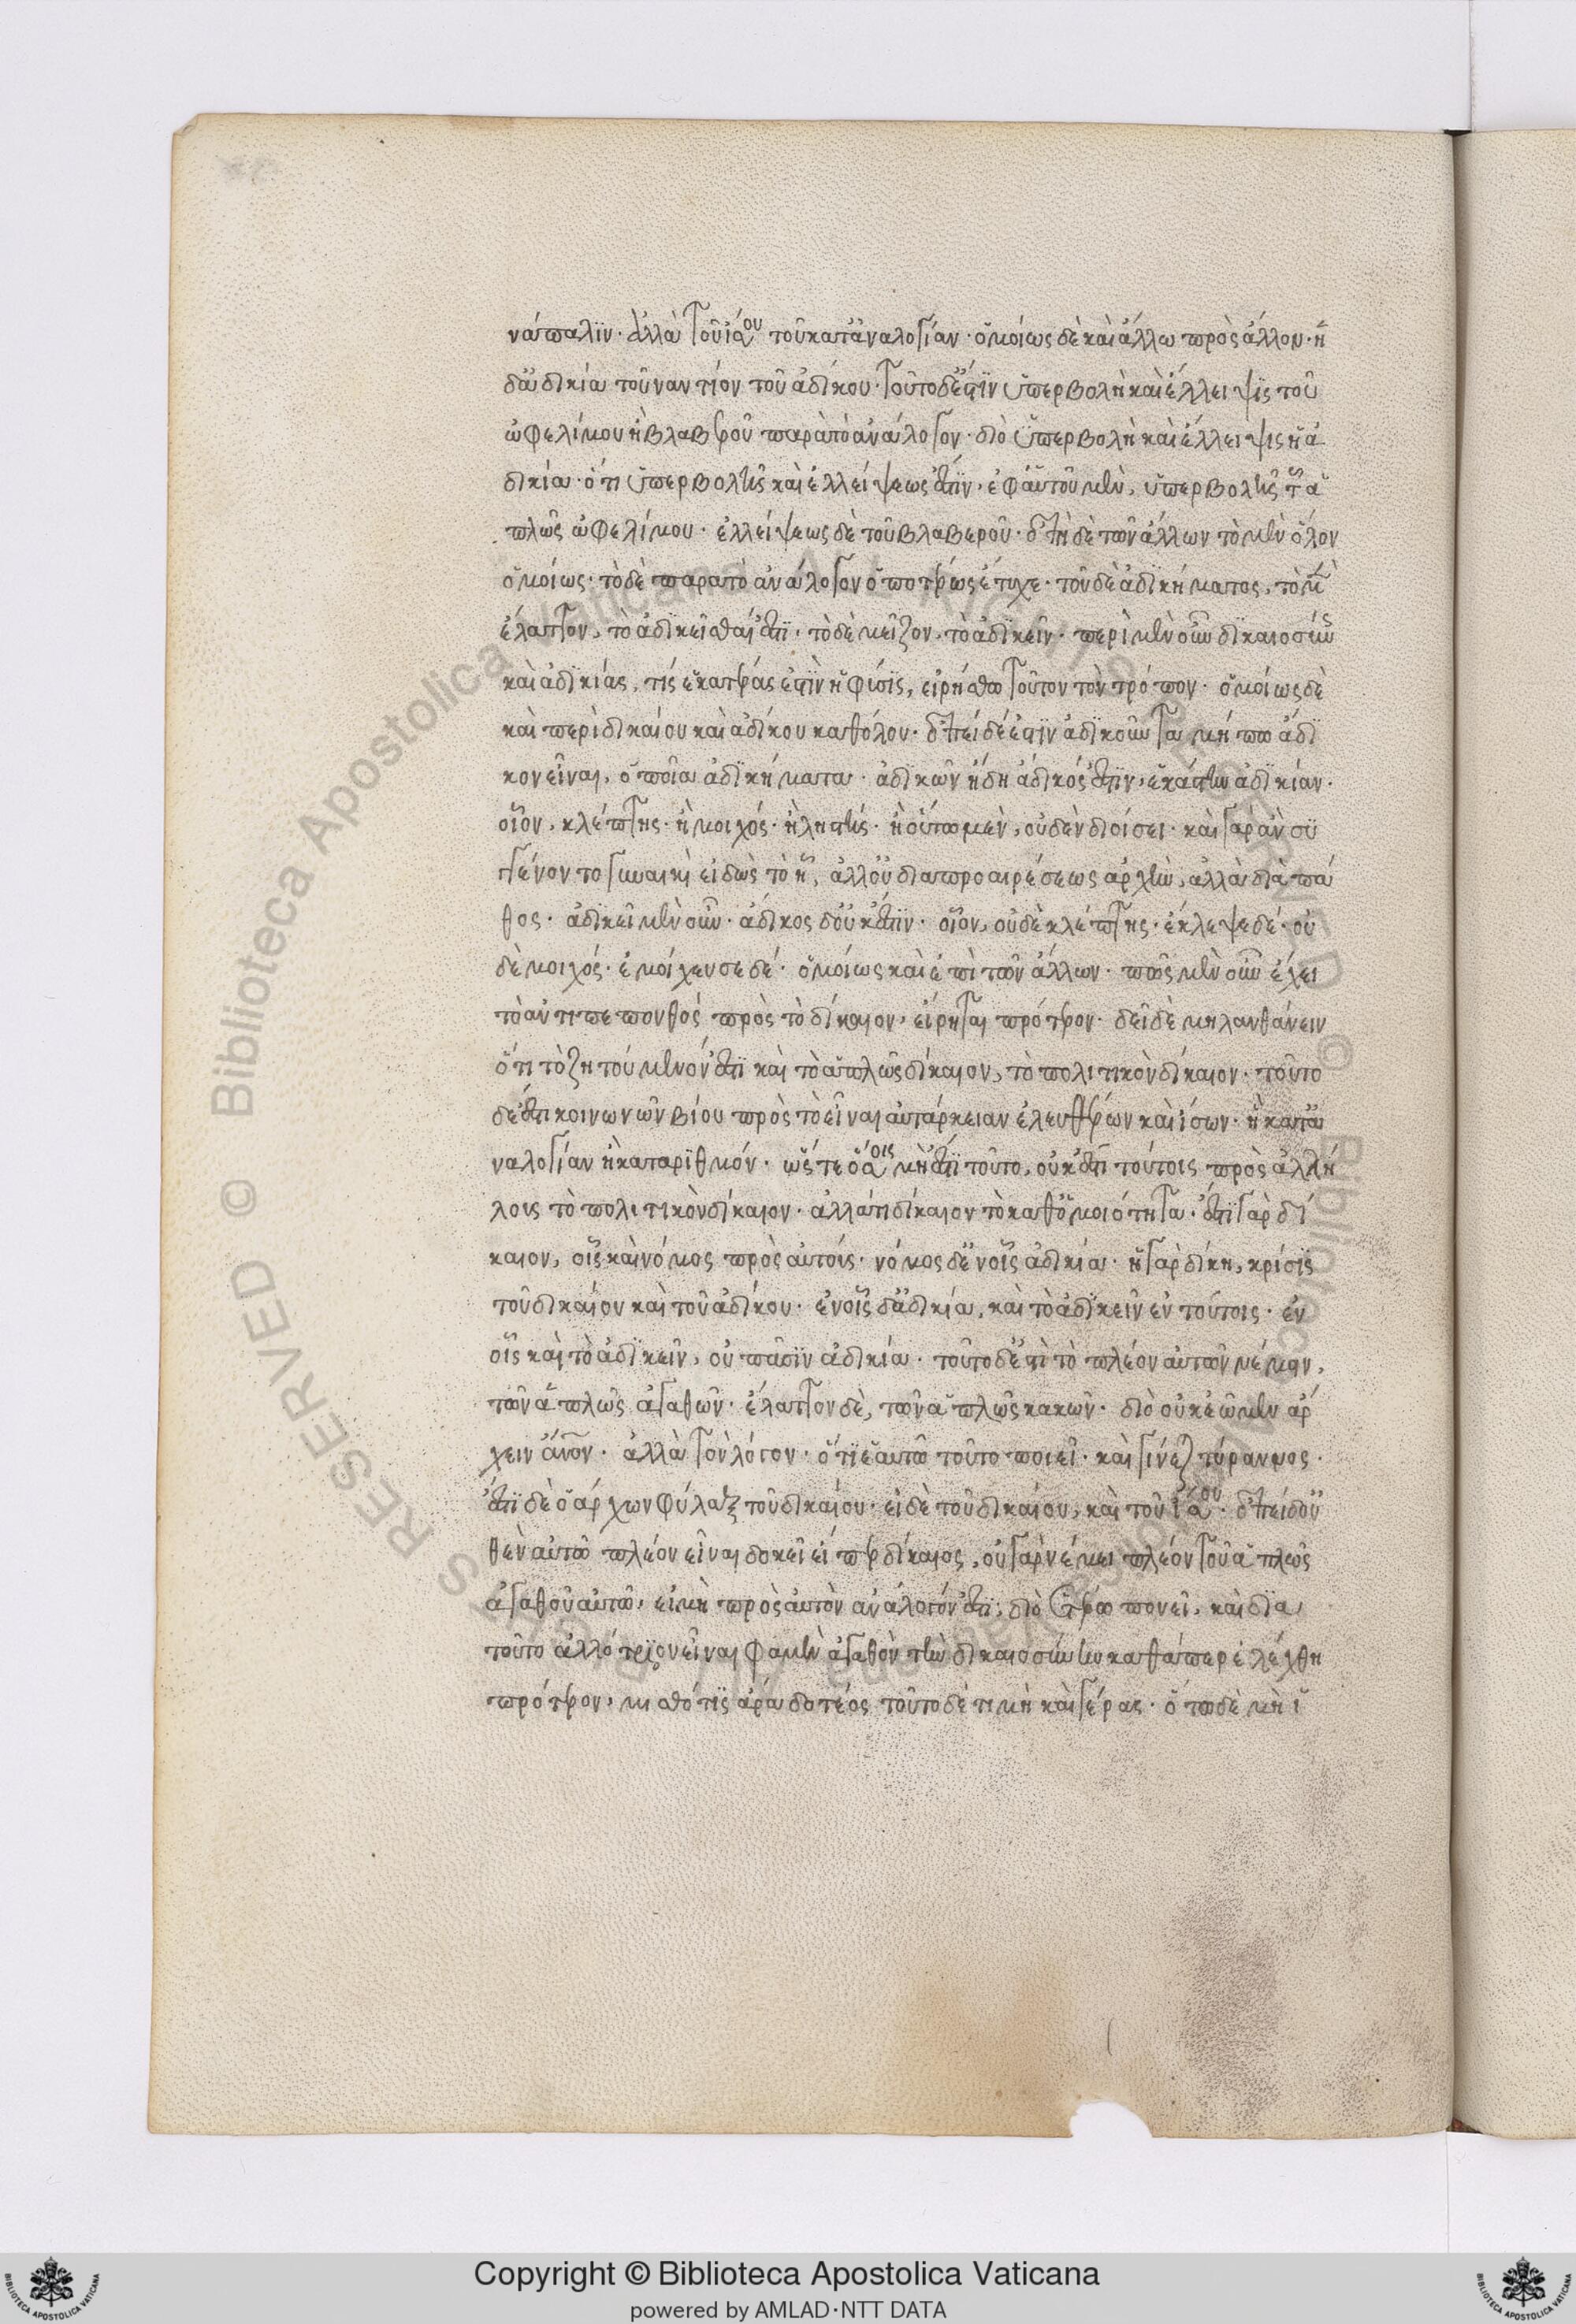 νάπαλιν· ἀλλὰ τοῦ ἴσου τοῦ κατ' ἀναλογίαν· ὁμοίως δὲ καὶ ἄλλω πρὸς ἄλλον· ἡ
δ' ἀδικία τοὐναντίον τοῦ ἀδίκου· τοῦτο δ' ἐστὶν ὑπερβολὴ καὶ ἔλλειψις τοῦ
ὠφελίμου ἢ βλαβεροῦ παρὰ τὸ ἀνάλογον· διὸ ὑπερβολὴ καὶ ἔλλειψις ἡ ἀ
δικία· ὅτι ὑπερβολῆς καὶ ἐλλείψεως ἐστίν, ἐφ' αὑτοῦ μὲν, ὑπερβολῆς τοῦ ἁ
πλῶς ὠφελίμου· ἐλλείψεως δὲ τοῦ βλαβεροῦ· ἐπὶ δὲ τῶν ἄλλων τὸ μὲν ὅλον
ὁμοίως· τὸ δὲ παρὰ τὸ ἀνάλογον ὁποτέρως ἔτυχε· τοῦ δὲ ἀδικήματος, τὸ μὲν
ἔλαττον, τὸ ἀδικεῖσθαί ἐστι· τὸ δὲ μεῖζον, τὸ ἀδικεῖν· περὶ μὲν οὖν δικαιοσύνης
καὶ ἀδικίας, τίς ἑκατέρας ἐστὶν ἡ φύσις, εἰρήσθω τοῦτον τὸν τρόπον· ὁμοίως δὲ
καὶ περὶ δικαίου καὶ ἀδίκου καθόλου· ἐπεὶ δέ ἐστιν ἀδικοῦντα μήπω ἄδι
κον εἶναι, ὁ ποῖα ἀδικήματα ἀδικῶν ἤδη ἄδικός ἐστιν, ἑκάστην ἀδικίαν·
οἷον, κλέπτης· ἢ μοιχός· ἢ ληστής· ἢ οὕτω μὲν, οὐδὲν διοίσει· καὶ γὰρ ἂν συ
γένοντο γυναικὶ εἰδὼς τὸ ᾗ, ἀλλ' οὐ διὰ προαιρέσεως ἀρχὴν, ἀλλὰ διὰ πά
θος· ἀδικεῖ μὲν οὖν· ἄδικος δ' οὐκ ἔστιν· οἷον, οὐδὲ κλέπτης· ἔκλεψε δέ· οὐ
δὲ μοιχός· ἐμοίχευσε δέ· ὁμοίως καὶ ἐπὶ τῶν ἄλλων· πῶς μὲν οὖν ἔχει
τὸ ἀντιπεπονθός πρὸς τὸ δίκαιον, εἴρηται πρότερον· δεῖ δὲ μὴ λανθάνειν
ὅτι τὸ ζητούμενόν ἐστι καὶ τὸ ἁπλῶς δίκαιον, τὸ πολιτικὸν δίκαιον· τοῦτο
δέ ἐστι κοινωνῶν βίου πρὸς τὸ εἶναι αὐτάρκειαν ἐλευθέρων καὶ ἴσων· ἢ κατ' ἀ
ναλογίαν ἢ κατ' ἀριθμόν· ὥστε ὅσοις μὴ ἔστι τοῦτο, οὐκ ἔστι τούτοις πρὸς ἀλλή
λους τὸ πολιτικὸν δίκαιον· ἀλλά τι δίκαιον τὸ καθ' ὁμοιότητα· ἔστι γὰρ δί
καιον, οἷς καὶ νόμος πρὸς αὐτούς· νόμος δ' ἐν οἷς ἀδικία· ἡ γὰρ δίκη, κρίσις
τοῦ δικαίου καὶ τοῦ ἀδίκου· ἐν οἷς δ' ἀδικία, καὶ τὸ ἀδικεῖν ἐν τούτοις· ἐν
οἷς καὶ τὸ ἀδικεῖν, οὐ πᾶσιν ἀδικία· τοῦτο δ' ἐστὶ τὸ πλέον αὑτῶν νέμειν,
τῶν ἁπλῶς ἀγαθῶν· ἔλαττον δὲ, τῶν ἁπλῶς κακῶν· διὸ οὐκ ἐῶμεν ἄρ
χειν ἄνον· ἀλλὰ τὸν λόγον· ὅτι ἑαυτῶ τοῦτο ποιεῖ· καὶ γίνεται τύραννος·
ἔστι δὲ ὁ ἄρχων φύλαξ τοῦ δικαίου· εἰ δὲ τοῦ δικαίου, καὶ τοῦ ἴσου· ἐπεὶ δ' οὐ
θὲν αὐτῶ πλέον εἶναι δοκεῖ εἴπερ δίκαιος, οὐ γὰρ νέμει πλέον τοῦ ἁπλῶς
ἀγαθοῦ αὑτῶ, εἰ μὴ πρὸς αὑτὸν ἀνάλογόν ἐστι, διὸ ἑτέρω πονεῖ, καὶ διὰ
τοῦτο ἀλλότριον εἶναι φαμὲν ἀγαθὸν τὴν δικαιοσύνην καθάπερ ἐλέχθη
πρότερον, μισθός τις ἄρα δοτέος τοῦτο δὲ τιμὴ καὶ γέρας· ὅτω δὲ μὴ ἱ